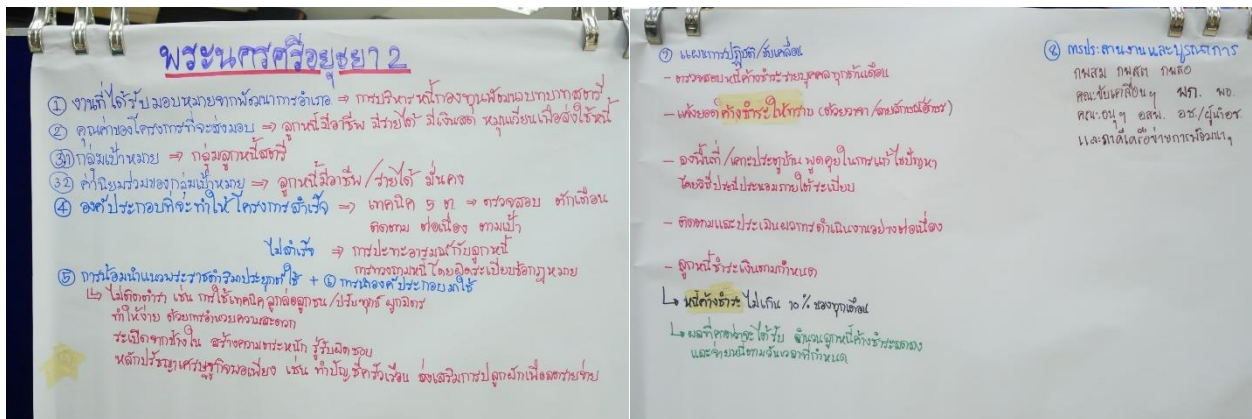 พระนครศรีอยุธยา 2
① งานที่ได้รับมอบหมายจากพัฒนาการอำเภอ ⇒ การบริหารหนี้กองทุนพัฒนาบทบาทสตรี
② คุณค่าของโครงการที่จะส่งมอบ ⇒ ลูกหนี้มีอาชีพ มีรายได้ มีเงินสด หมุนเวียนเพื่อส่งใช้หนี้
3.1 กลุ่มเป้าหมาย ⇒ กลุ่มลูกหนี้สตรี
3.2 ค่านิยมร่วมของกลุ่มเป้าหมาย ⇒ ลูกหนี้มีอาชีพ/รายได้ มั่นคง
④ องค์ประกอบที่จะทำให้โครงการสำเร็จ ⇒ เทคนิค 5 ต ⇒ ตรวจสอบ ตักเตือน
ติดตาม ต่อเนื่อง ตามเป้า
ไม่สำเร็จ ⇒ การปะทะอารมณ์กับลูกหนี้
การทวงถามหนี้โดยผิดระเบียบข้อกฎหมาย
⑤ การน้อมนำแนวพระราชดำริมาประยุกต์ใช้ + ⑥ การนำองค์ประกอบมาใช้
↳ ไม่ติดตำรา เช่น การใช้เทคนิค ลูกล่อลูกชน/ปรับทุกข์ ผูกมิตร
ทำให้ง่าย ด้วยการอำนวยความสะดวก
ระเบิดจากข้างใน สร้างความตระหนัก รู้รับผิดชอบ
หลักปรัชญาเศรษฐกิจพอเพียง เช่น ทำบัญชีครัวเรือน ส่งเสริมการปลูกผักเพื่อลดรายจ่าย
⑦ แผนการปฏิบัติ/ขับเคลื่อน
- ตรวจสอบหนี้ค้างชำระรายบุคคลทุกต้นเดือน
- แจ้งยอดค้างชำระให้ทราบ (ด้วยวาจา/ลายลักษณ์อักษร)
- ลงพื้นที่/เคาะประตูบ้าน พูดคุยในการแก้ไขปัญหา
โดยวิธีประนีประนอมภายใต้ระเบียบ
- ติดตามและประเมินผลการดำเนินงานอย่างต่อเนื่อง
- ลูกหนี้ชำระเงินตามกำหนด
↳ หนี้ค้างชำระ ไม่เกิน 10 % ของทุกเดือน
↳ ผลที่คาดว่าจะได้รับ จำนวนลูกหนี้ค้างชำระลดลง
และจ่ายหนี้ตามวันเวลาที่กำหนด
⑧ การประสานงานและบูรณาการ
กพสม กพสต กพสอ
คณะขับเคลื่อนฯ พก. พอ.
คณะอนุฯ อสพ. อช./ผู้นำอช.
และภาคีเครือข่ายการพัฒนาฯ